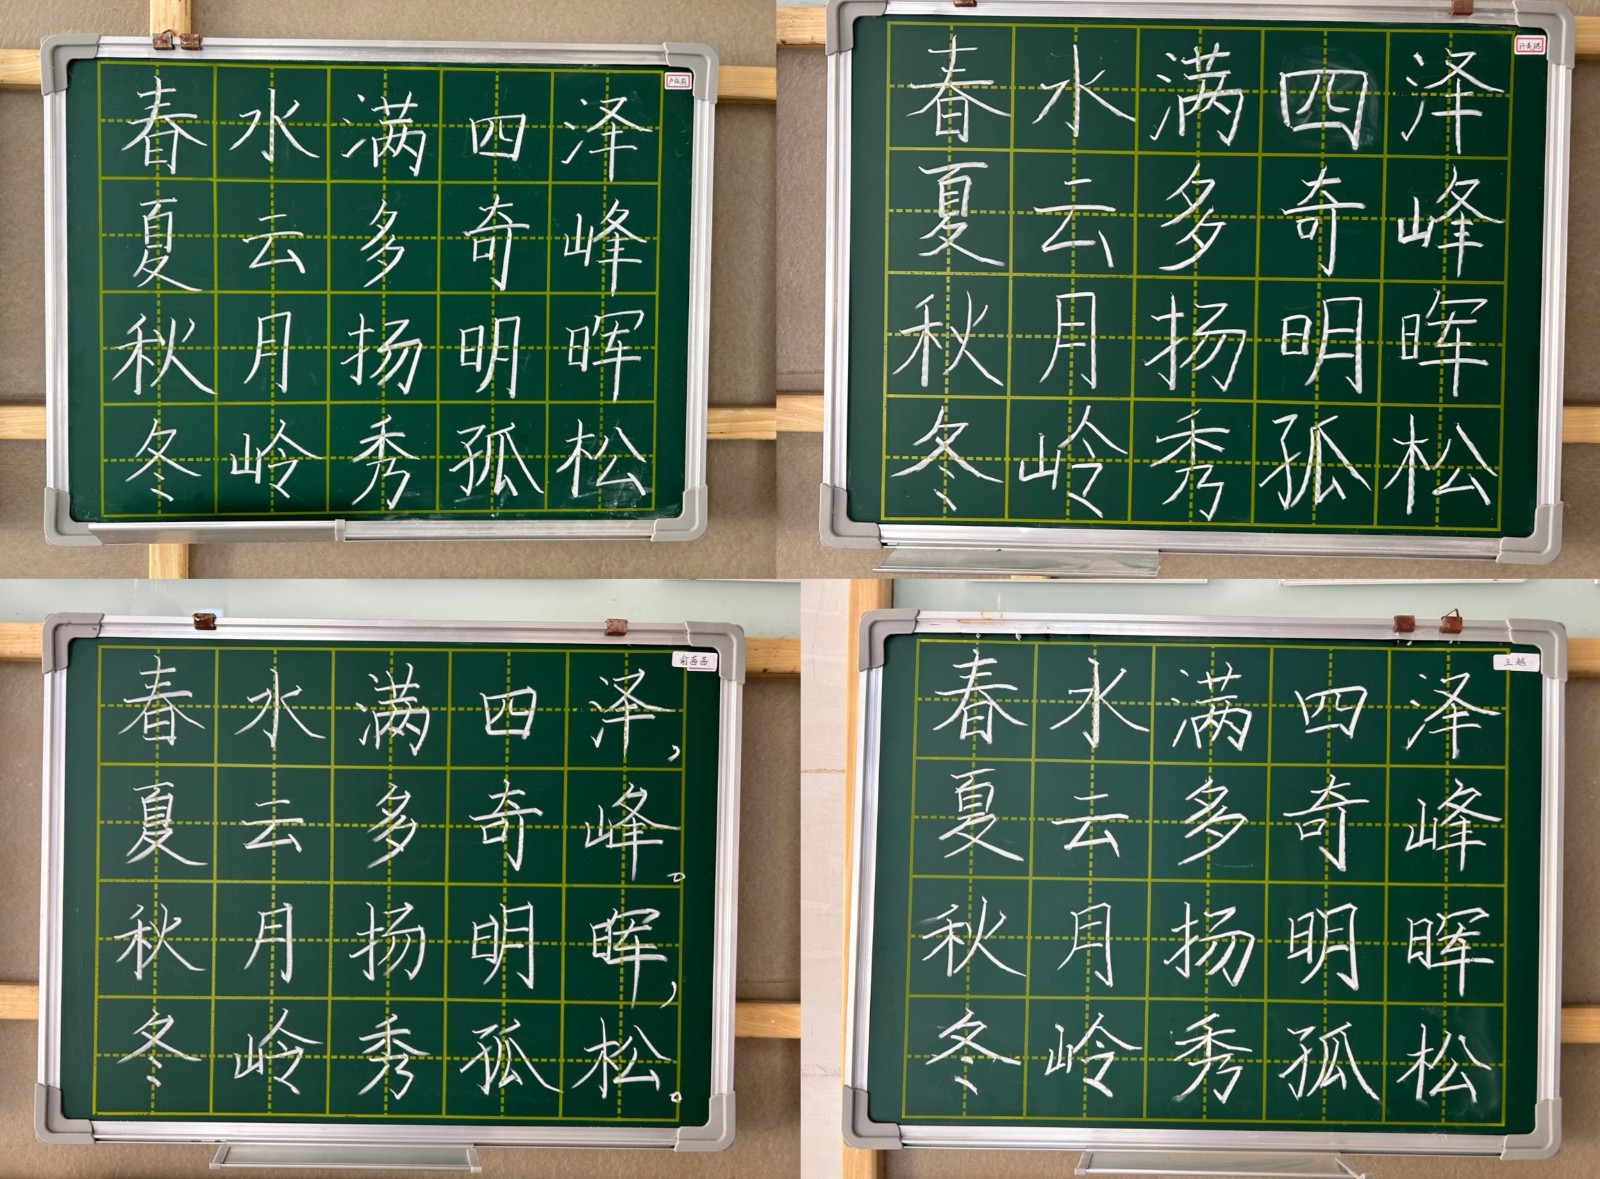 春水满四泽
夏云多奇峰
秋月扬明晖
冬岭秀孤松
春水满四泽
夏云多奇峰
秋月扬明晖
冬岭秀孤松
俞茜茜
春水满四泽，
夏云多奇峰。
秋月扬明晖，
冬岭秀孤松。
王越
春水满四泽
夏云多奇峰
秋月扬明晖
冬岭秀孤松